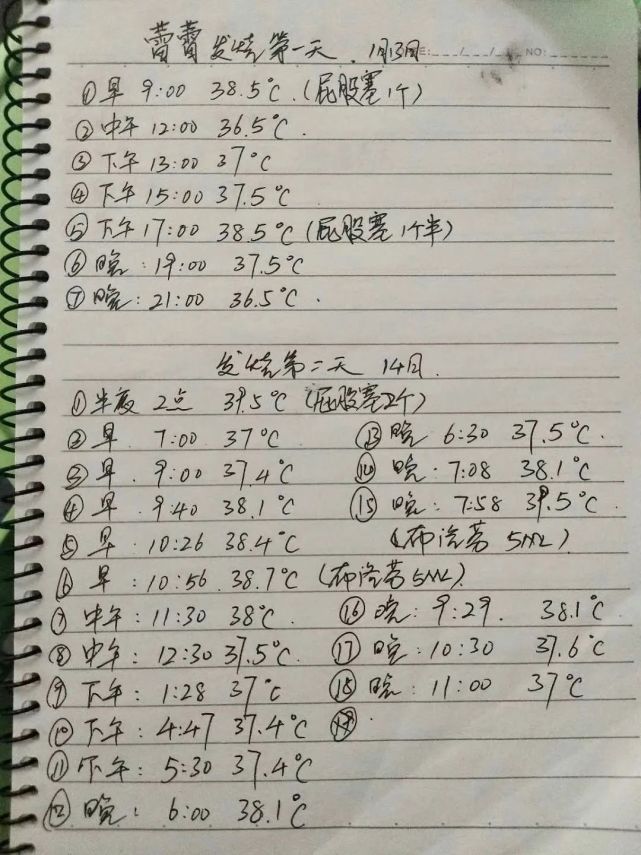 蕾蕾发烧第一天. 1月13日
E: / / NO:
①早 9:00 38.5℃.(屁股塞1个)
②中午 12:00 36.5℃.
③下午 13:00 37℃
④下午 15:00 37.5℃
⑤下午 17:00 38.5℃(屁股塞1个半)
⑥晚: 19:00 37.5℃
⑦晚: 21:00 36.5℃.
发烧第二天 14日.
①半夜 2点 39.5℃(屁股塞2个)
②早. 7:00 37℃
③早. 9:00 37.4℃
④早. 9:40 38.1℃
⑤早. 10:26 38.4℃
⑥早: 10:56 38.7℃(布洛芬5ML)
⑦中午: 11:30 38℃.
⑧中午: 12:30 37.5℃.
⑨下午: 1:28 37℃
⑩下午: 4:47 37.4℃
⑪下午: 5:30 37.4℃
⑫晚: 6:00 38.1℃
⑬晚 6:30 37.5℃.
⑭晚: 7:08 38.1℃
⑮晚: 7:58 39.5℃.
(布洛芬 5ML)
⑯晚: 9:29. 38.1℃
⑰晚: 10:30 37.6℃
⑱晚: 11:00 37℃